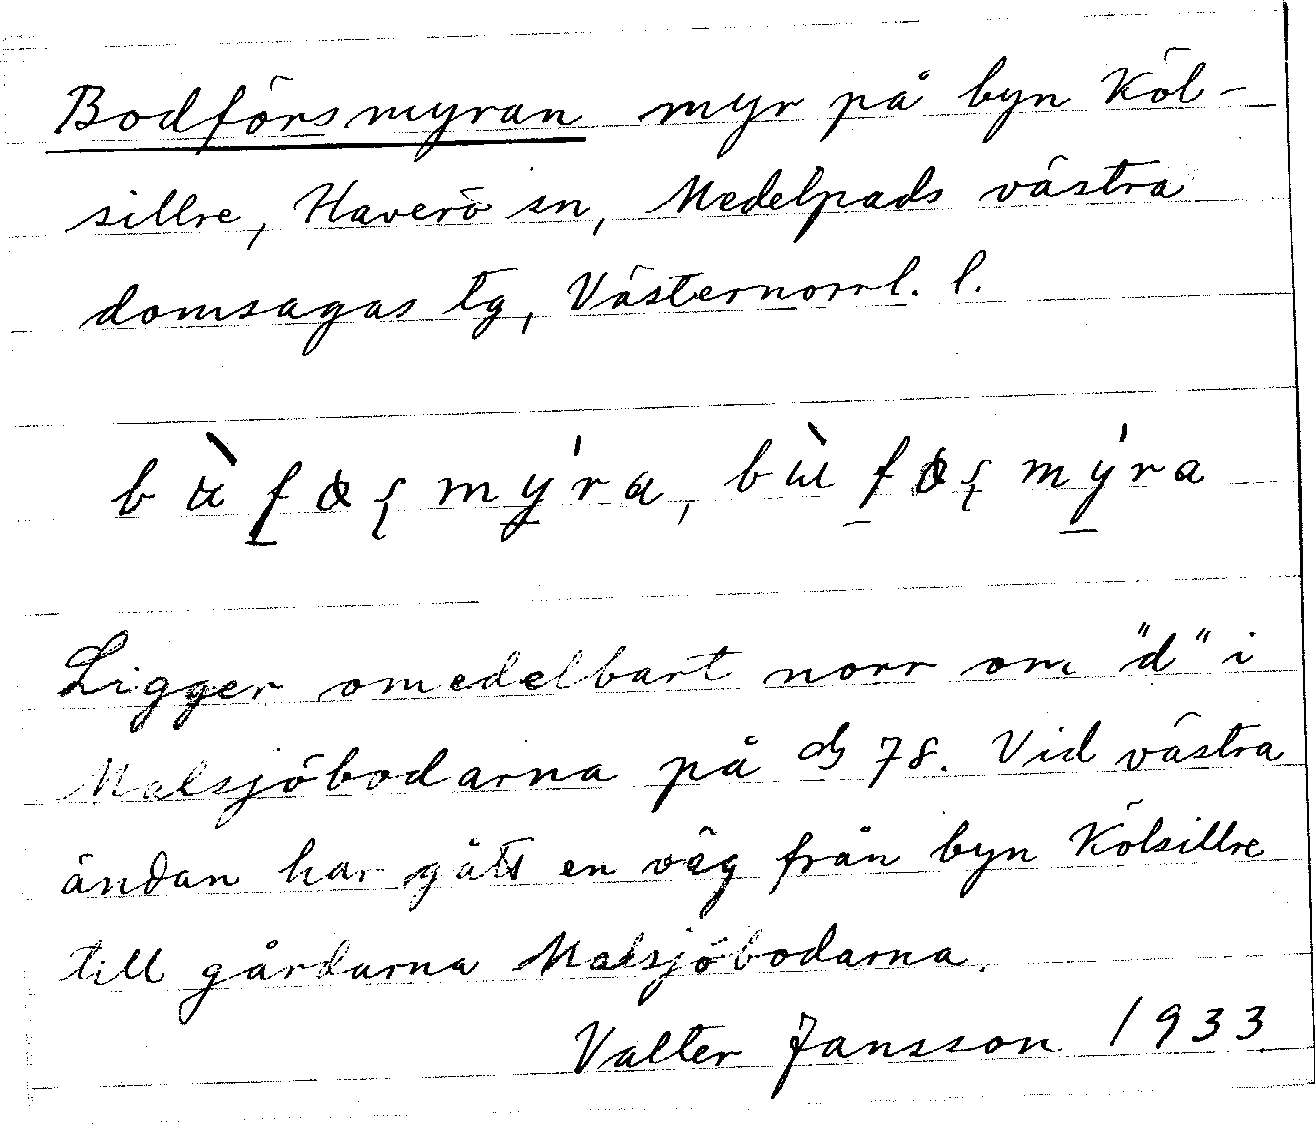 Bodförsmyran myr på byn Köl-
sillre, Haverö sn, Medelpads västra
domsagas tg, Västernorrl. l.
Ligger omedelbart norr om "d" i
Malsjöbodarna på 78. Vid västra
ändan har gått en väg från byn Kölsillre
till gårdarna Malsjöbodarna.
Valter Jansson 1933